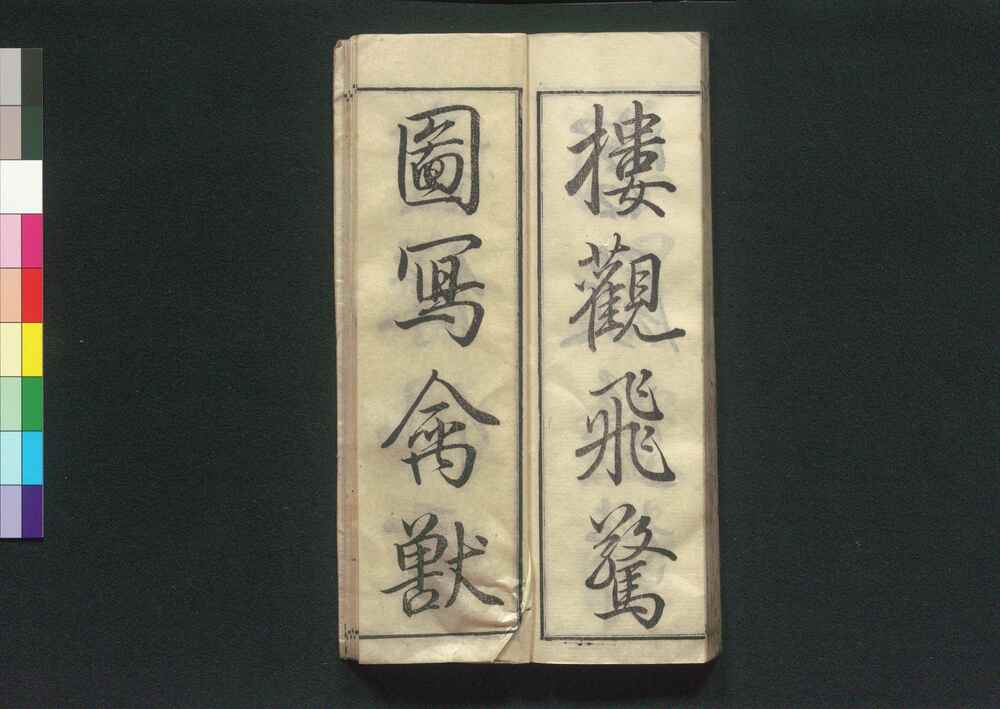 樓觀飛驚
圖寫禽獸